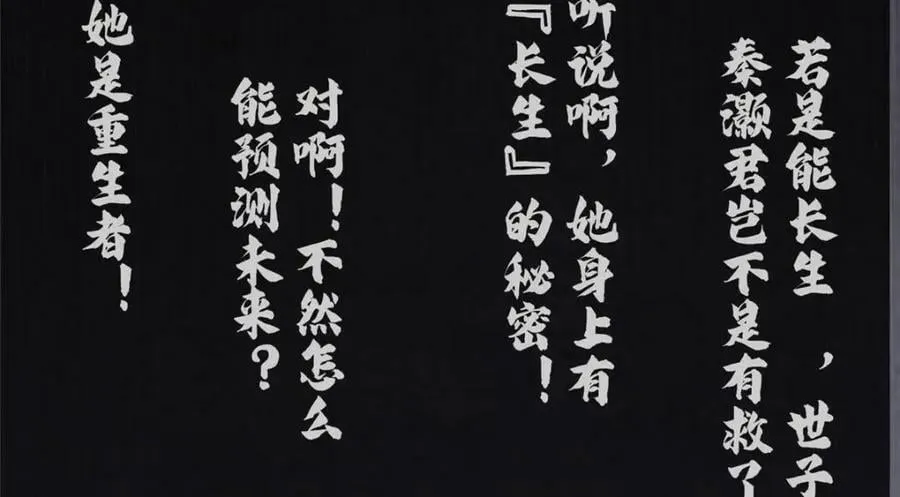 若是能长生，世子
秦灏君岂不是有救了
听说啊，她身上有
『长生』的秘密！
对啊！不然怎么
能预测未来？
她是重生者！